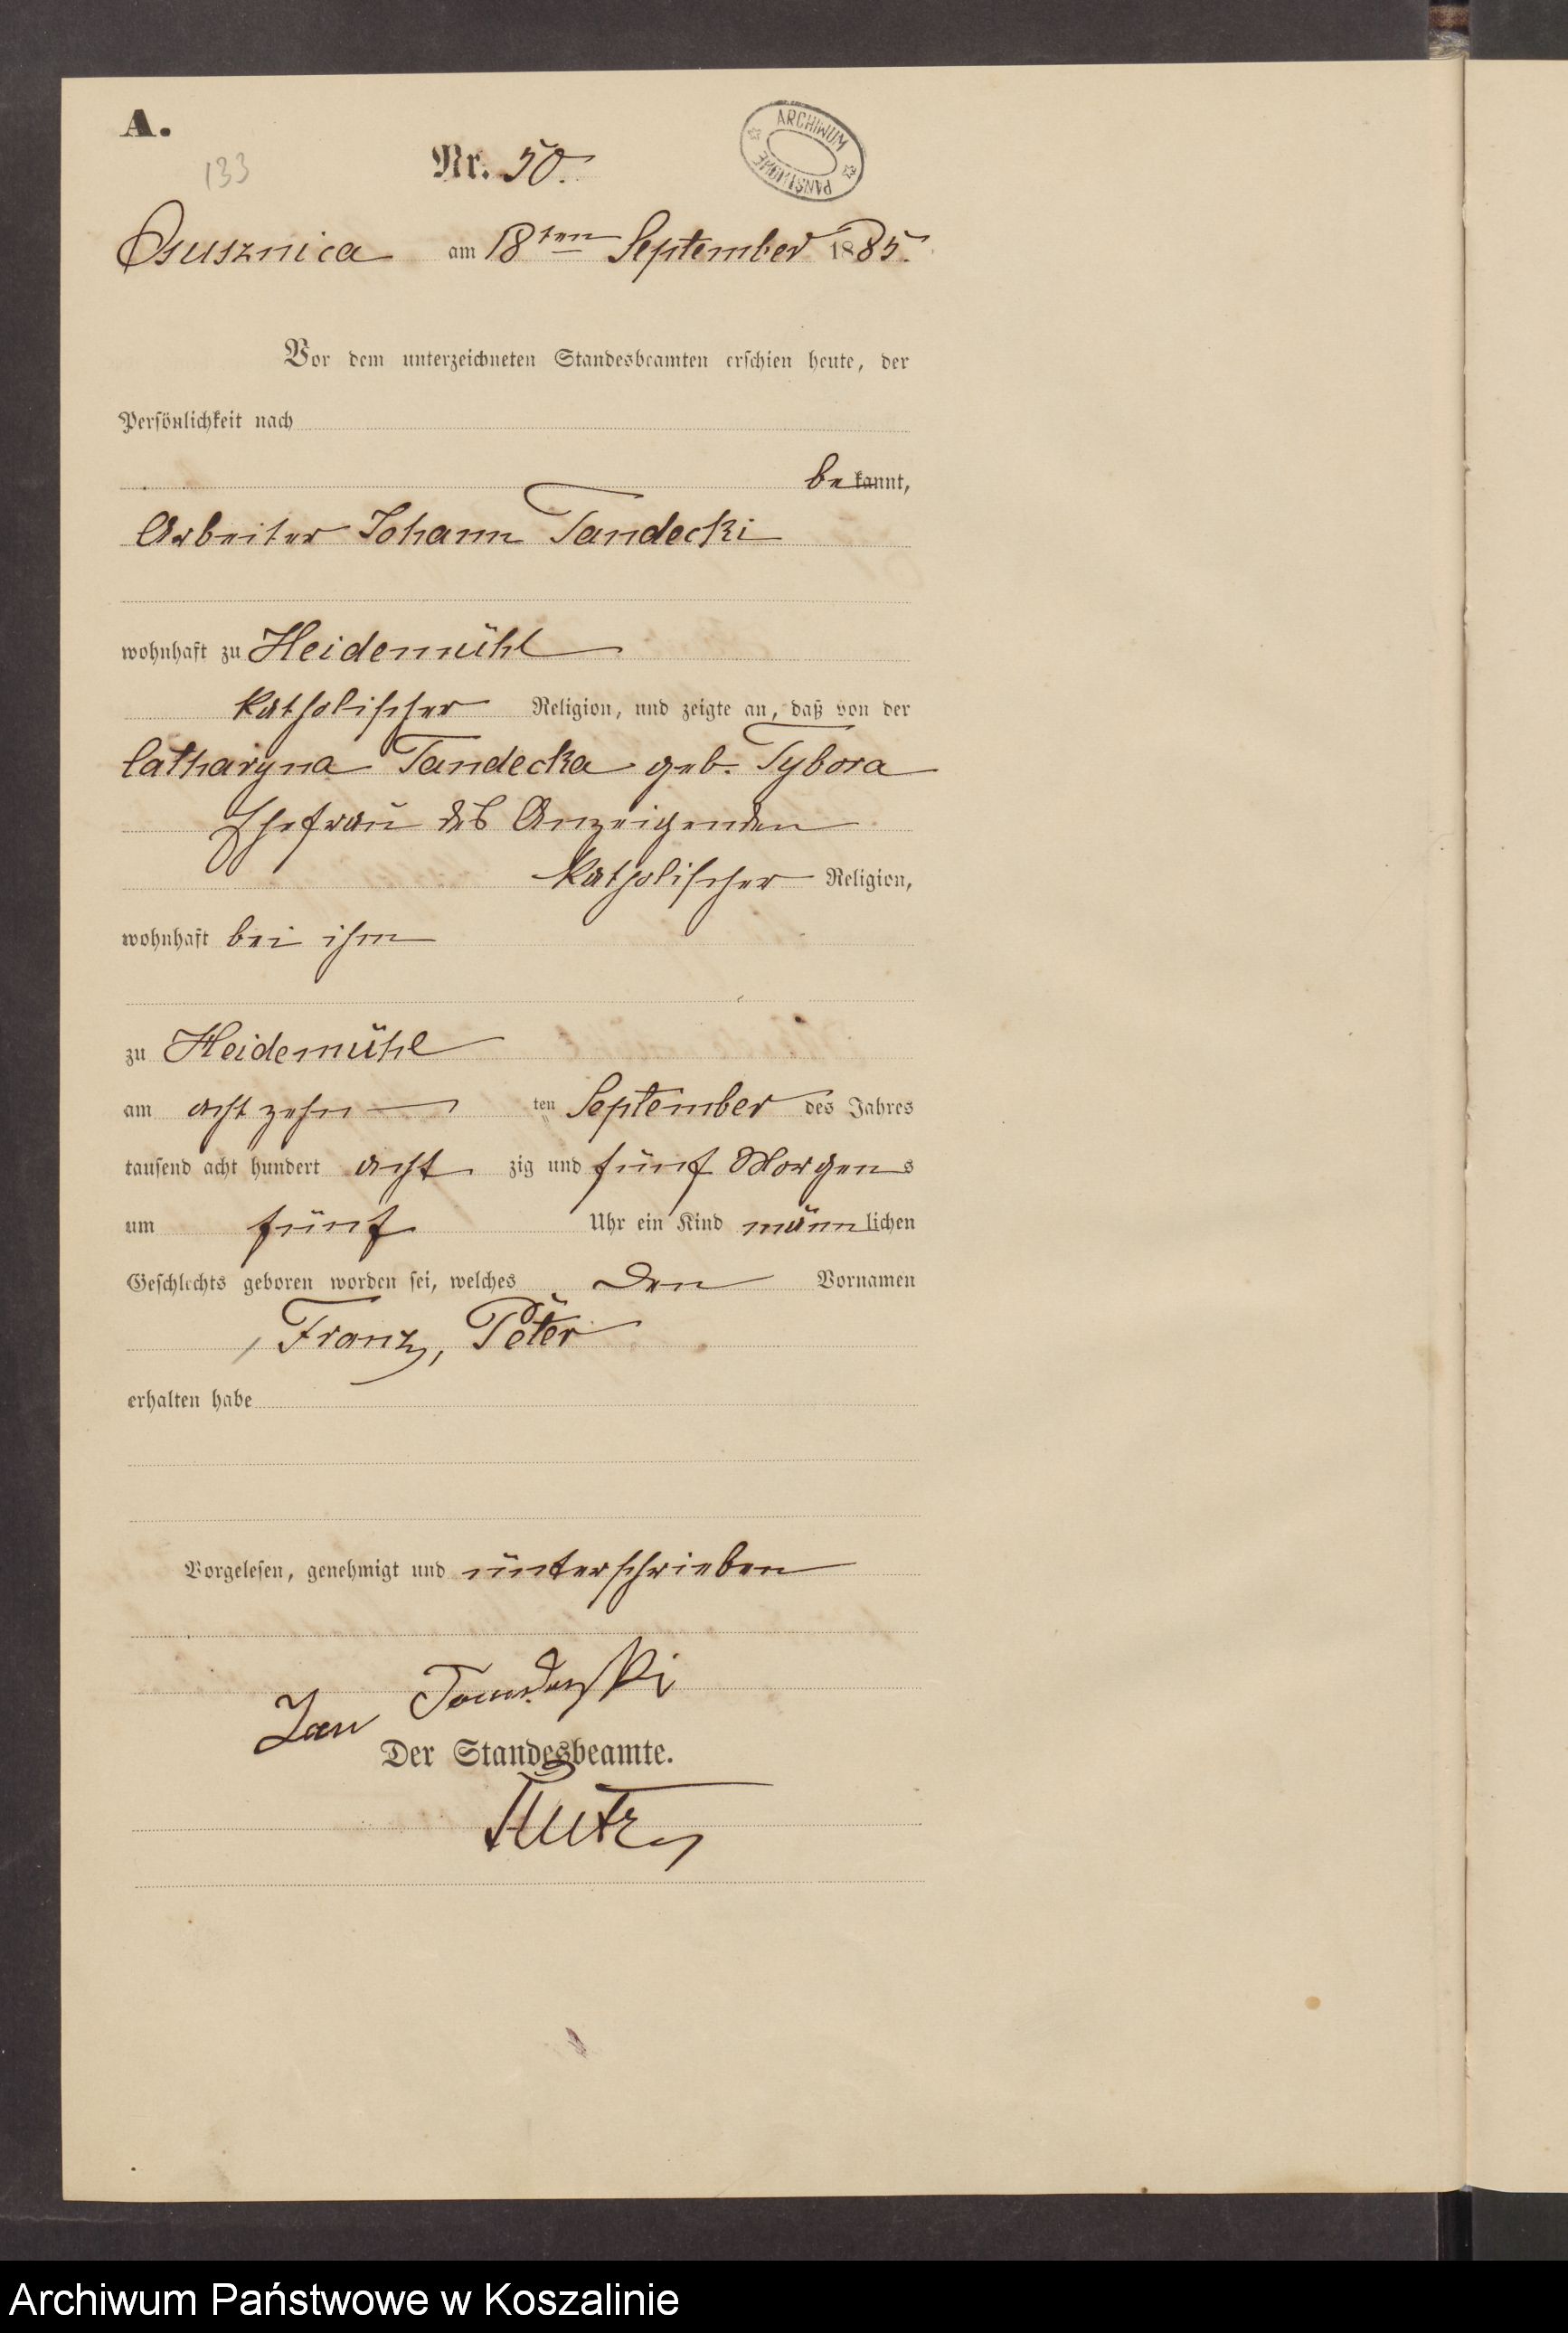 A.
133
Nr. 50.
ARCHIWUM
PAŃSTWOWE
Osusznica am 18ten September 1885.
Vor dem unterzeichneten Standesbeamten erschien heute, der
Persönlichkeit nach
bekannt,
Arbeiter Johann Tandecki
wohnhaft zu Heidemühl
katholischer Religion, und zeigte an, daß von der
Catharyna Tandecka geb. Tybora
Ehefrau des Anzeigenden
katholischer Religion,
wohnhaft bei ihm
zu Heidemühl
am achtzehn ten September des Jahres
tausend acht hundert acht zig und fünf Morgens
um fünf Uhr ein Kind männlichen
Geschlechts geboren worden sei, welches den Vornamen
Franz, Peter
erhalten habe
Vorgelesen, genehmigt und unterschrieben
Jan Tandeski
Der Standesbeamte.
Archiwum Państwowe w Koszalinie